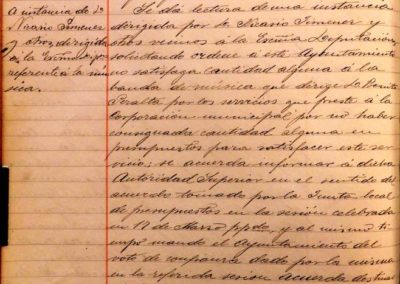 A instancia de Dn
Nicasio Jimenez
y otros, dirigida
a la Excma.
referente á la mu
sica.
Se dió lectura de una instancia
dirigida por Dn Nicasio Jimenez y
otros vecinos á la Excma Diputacion,
solicitando ordene á este Ayuntamiento
no satisfaga cantidad alguna á la
banda de música que dirige Dn Benito
Peralta por los servicios que preste á la
Corporación municipal por no haber
consignada cantidad alguna en
presupuestos para satisfacer este ser
vicio; se acuerda informar á dicha
Autoridad Superior en el sentido del
acuerdo tomado por la Junta local
de presupuestos en la sesión celebrada
en 12 de Marzo ppdo, y al mismo ti
empo usando el Ayuntamiento del
voto de confianza dado por la misma
en la referida sesion acuerda